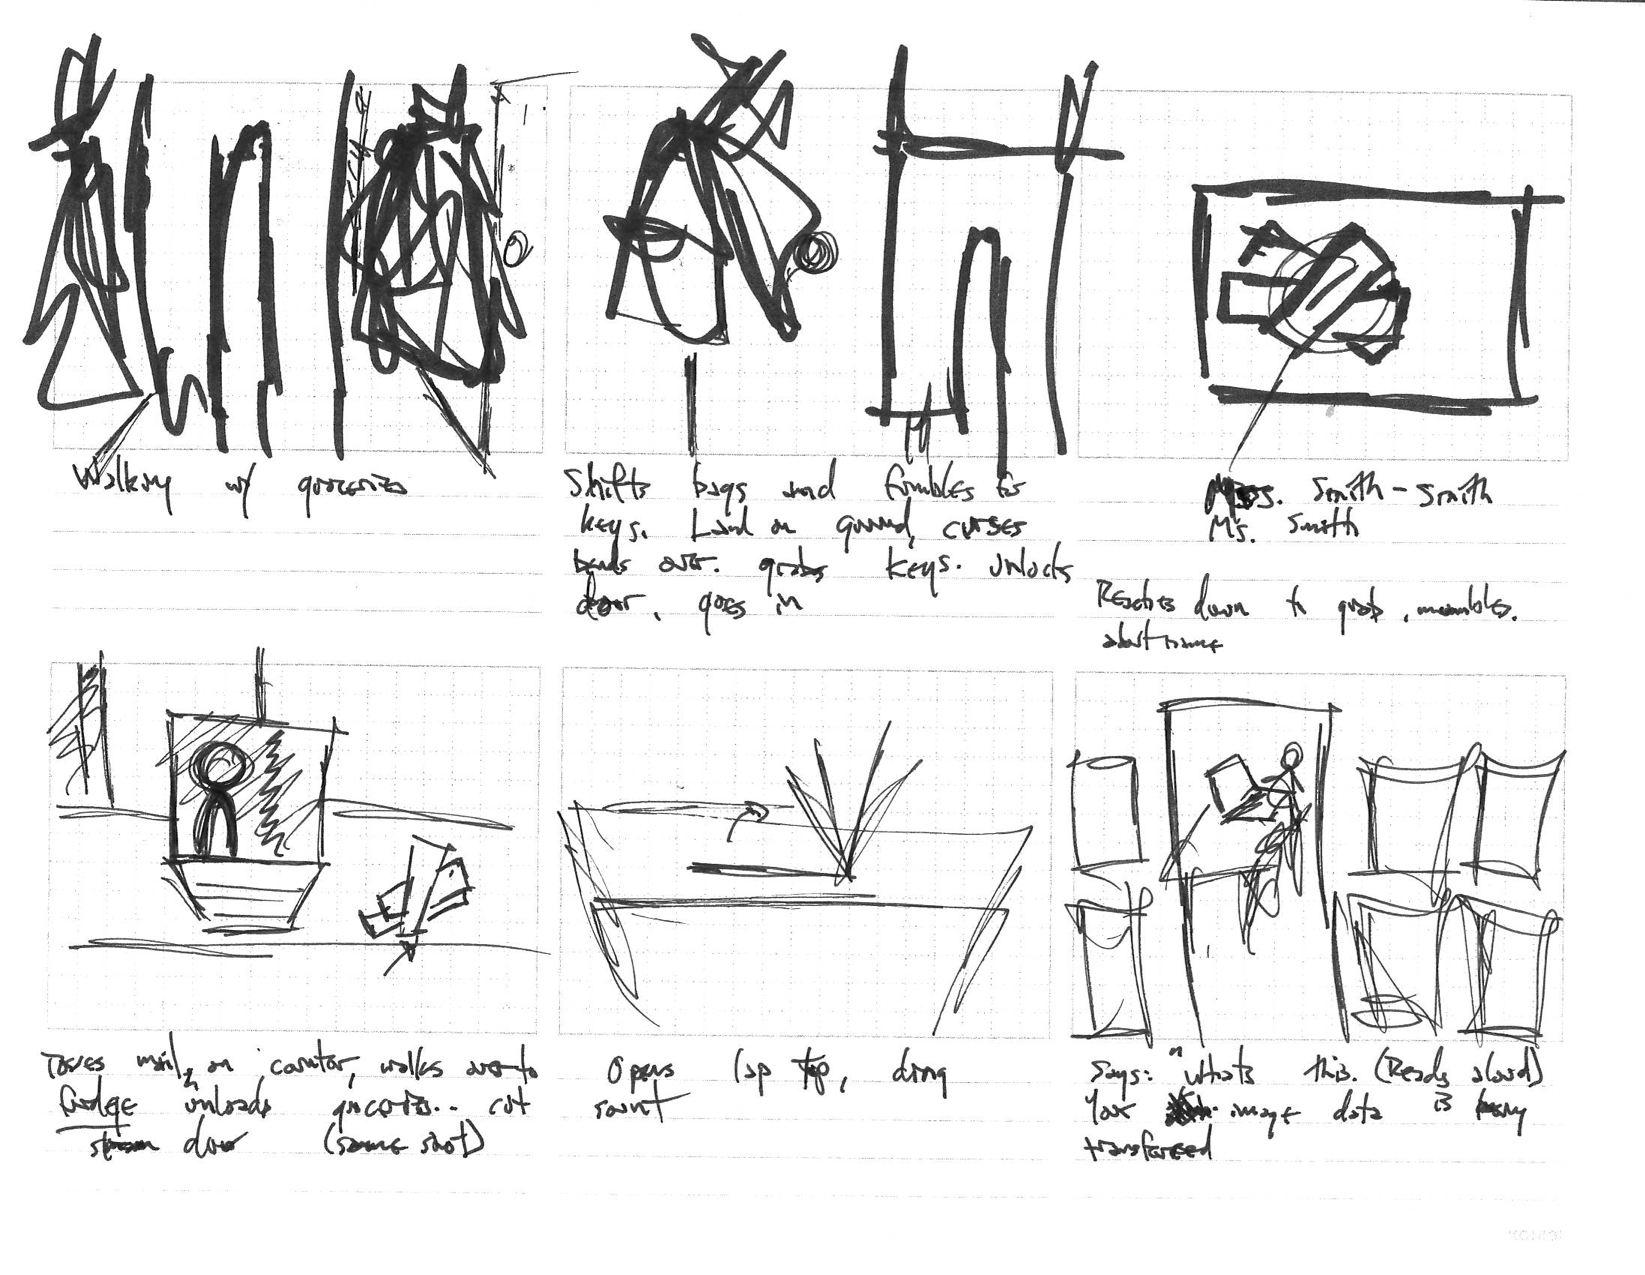 Walking w/ groceries
Shifts bags and fumbles for
keys. Land on ground, curses
bends over. grabs keys. unlocks
door, goes in
Mrs. Smith - Smith
Ms. Smith
Reaches down to grab, mumbles.
about name
Tosses mail, on counter, walks over to
fridge unloads groceries.. cut
door (same shot)
opens lap top, ding
says: "whats this. (Reads aloud)
Your image data is being
transferred